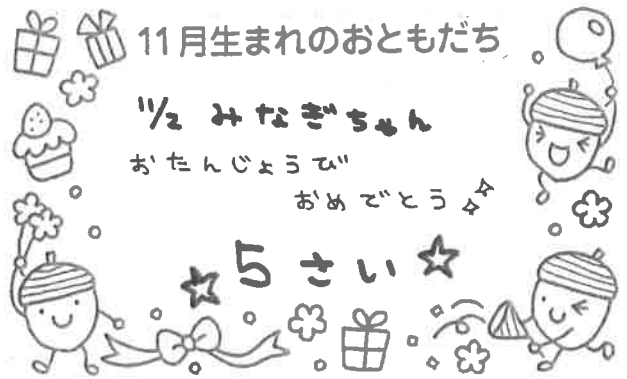 11月生まれのおともだち
11/2 みなぎちゃん
おたんじょうび
おめでとう
5さい